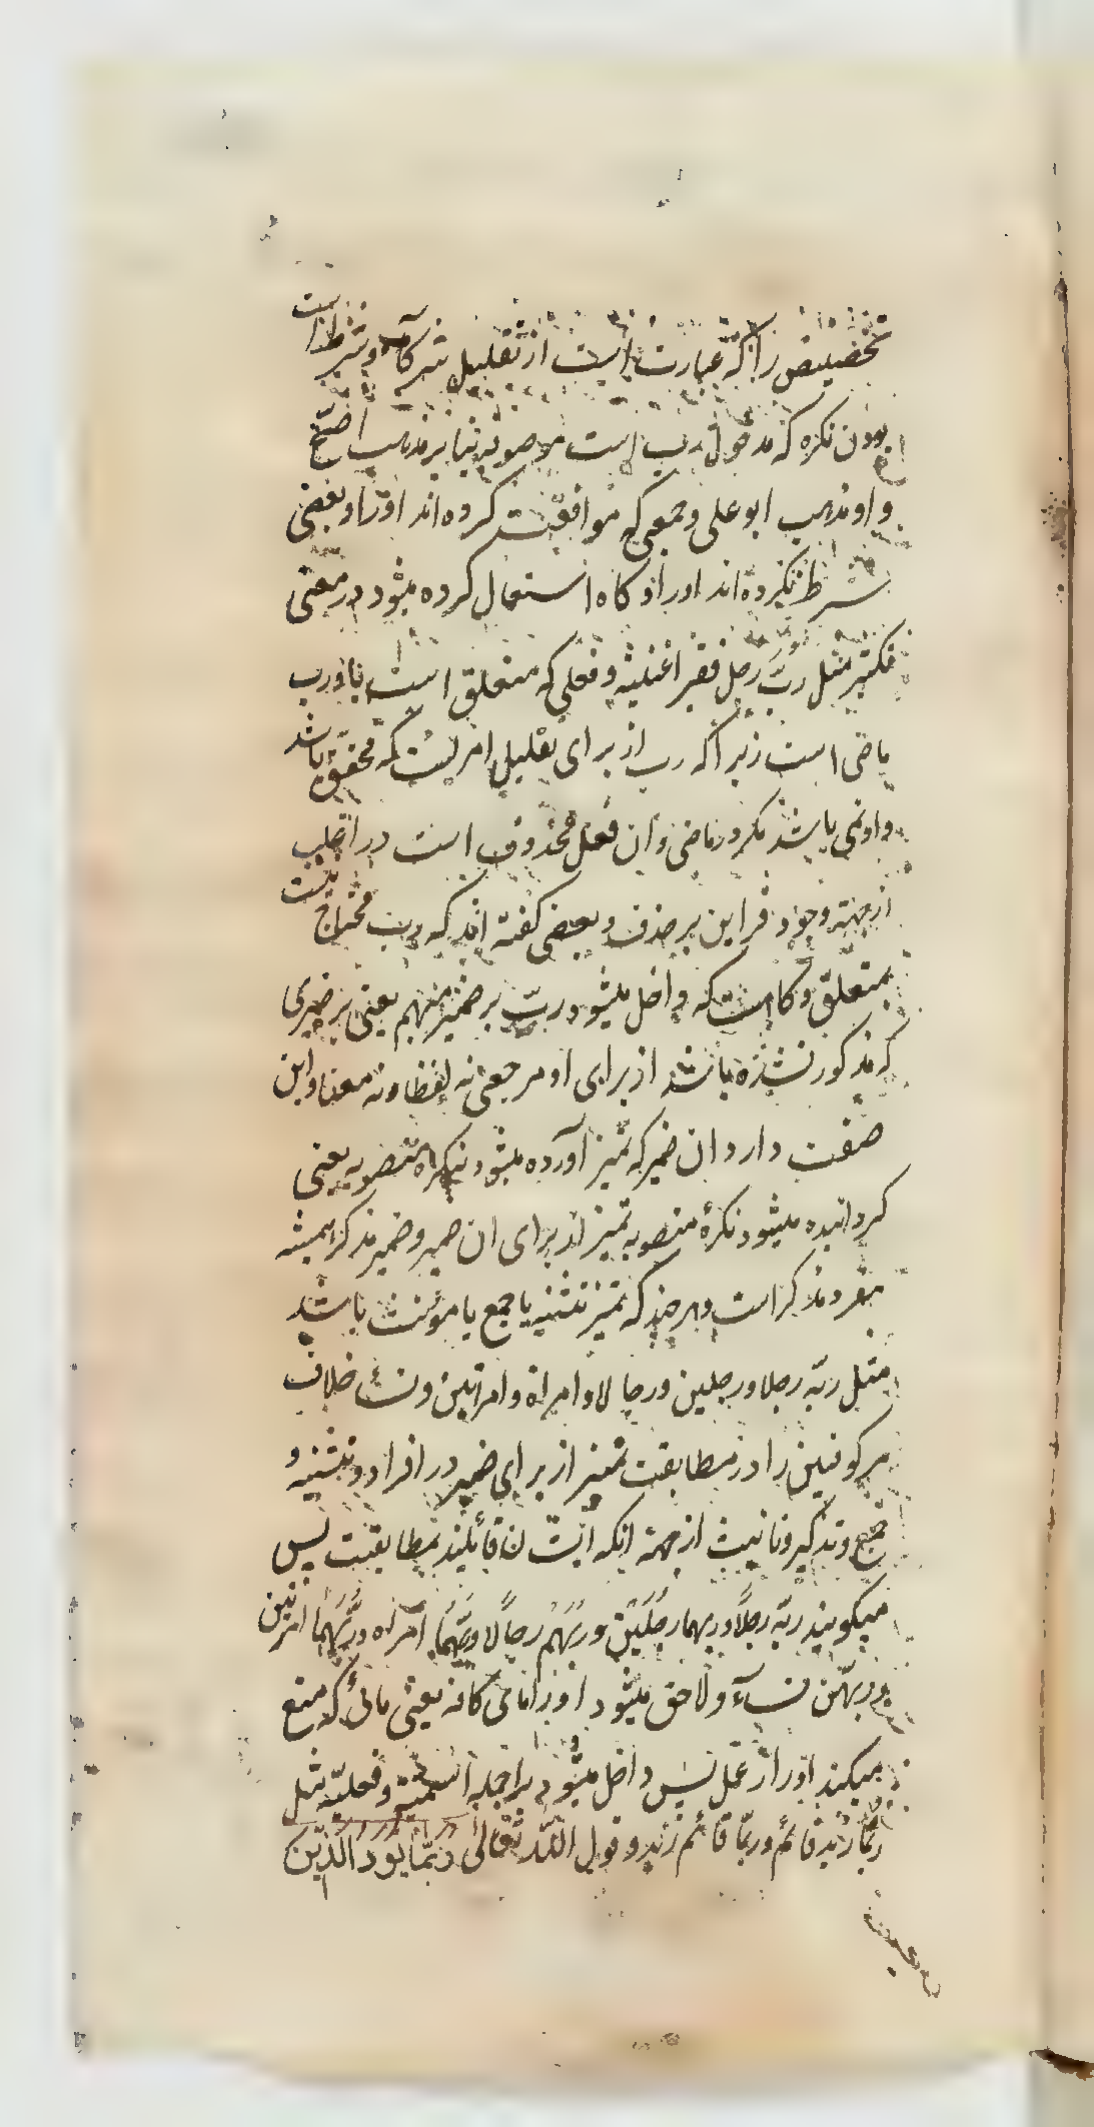 تخصیص را که عبارت است از تقلیل شرکاء و شرط است
بودن نکره که مدخول رب است موصوفه بنابر مذهب اصح
و او مذهب ابو علی و جمعی که موافقت کرده‌اند او را و بعضی
شرط نکرده‌اند او را و کاه استعمال کرده میشود در معنی
تکثیر مثل رُبَّ رجل فقیر اغنیته و فعلی که متعلق است باو رب
ماضی است زیرا که رب از برای تقلیل امریست که محقق باشد
و او نمی باشد مکر در ماضی و ان فعل محذوف است در اغلب
از جهته وجود قراین بر حذف و بعضی کفته اند که رب محتاج نیست
بمتعلق و کاهست که داخل میشود ربّ بر ضمیر منهم یعنی بر ضمیری
که مذکور نشده باشد از برای او مرجعی نه لفظا و نه معنا و این
صفت دارد ان ضمیر که تمیز آورده میشود نیکرهٔ منصوبه یعنی
کردانیده میشود نکرهٔ منصوبه تمیز از برای ان ضمیر و ضمیر مذکر همیشه
مفرد مذکر است و هر چند که تمیز تثنیه یا جمع یا مؤنث باشد
مثل ربّه رجلا و رجلین و رجالا و امراة و امراتین و نساء خلاف
مر کوفیین را در مطابقت تمیز از برای ضمیر در افراد و تثنیه و
جمع و تذکیر و تانیث از جهته انکه ایشان قائلیند بمطابقت پس
میکویند ربّه رجلاً و ربهما رجُلَیْن و ربّهُمْ رجالًا و ربّها امرأه و ربَّهُمَا امرأتین
و ربّهنّ نسآء و لاحق میشود او را مای کافه یعنی مائی که منع
میکند او را از عمل پس داخل میشود بر جمله اسمیّة و فعلیّه مثل
ربّما زید قائم و ربّما قائم زید و قول اللّه تعالی رُبَمَا یَوَدُّ الَّذِینَ